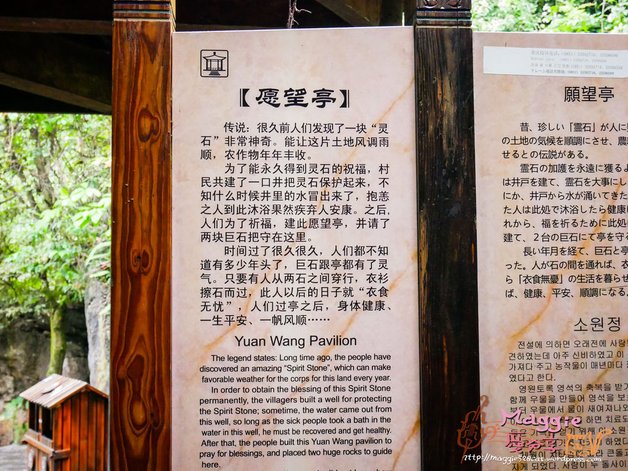 【愿望亭】
传说：很久前人们发现了一块“灵
石”非常神奇。能让这片土地风调雨
顺，农作物年年丰收。
为了能永久得到灵石的祝福，村
民共建了一口井把灵石保护起来，不
知什么时候井里的水冒出来了，抱恙
之人到此沐浴果然疾弃人安康。之后，
人们为了祈福，建此愿望亭，并请了
两块巨石把守在这里。
时间过了很久很久，人们都不知
道有多少年头了，巨石跟亭都有了灵
气。只要有人从两石之间穿行，衣衫
擦石而过，此人以后的日子就“衣食
无忧”，人们过亭之后，身体健康、
一生平安、一帆风顺……
Yuan Wang Pavilion
The legend states: Long time ago, the people have
discovered an amazing "Spirit Stone", which can make
favorable weather for the corps for this land every year.
In order to obtain the blessing of this Spirit Stone
permanently, the villagers built a well for protecting
the Spirit Stone; sometime, the water came out from
this well, so long as the sick people took a bath in the
water in this well, he must be recovered and get healthy.
After that, the people built this Yuan Wang pavilion to
pray for blessings, and placed two huge rocks to guide
here.
願望亭
昔、珍しい「霊石」が人に
の土地の気候を順調にさせ、農
せるとの伝説がある。
霊石の加護を永遠に獲るよ
は井戸を建て、霊石を大事にし
にか、井戸から水が涌いてきた
た人は此処で沐浴したら健康
れから、福を祈るために此処
建て、２台の巨石にて亭を守る
長い年月を経て、巨石と亭
った。人が石の間を通れば、衣
ら「衣食無憂」の生活を暮らせ
ば、健康、平安、順調になる人
소원정
전설에 의하면 오래전에 사람
견하였는데 아주 신비하였고 이
가져다 주고 농작물이 매년마다
였다고 한다.
영원토록 영석의 축복을 받기
함께 우물을 만들어 영석을 보
Maggie
http://maggie520cat.wordpress.com